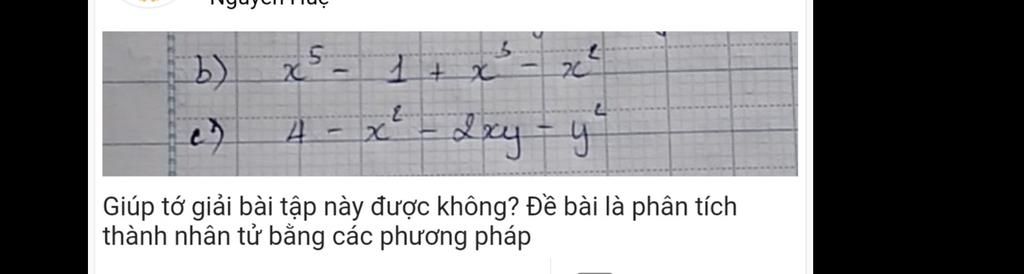 b) x⁵ - 1 + x³ - x²
c) 4 - x² - 2xy - y²
Giúp tớ giải bài tập này được không? Đề bài là phân tích
thành nhân tử bằng các phương pháp